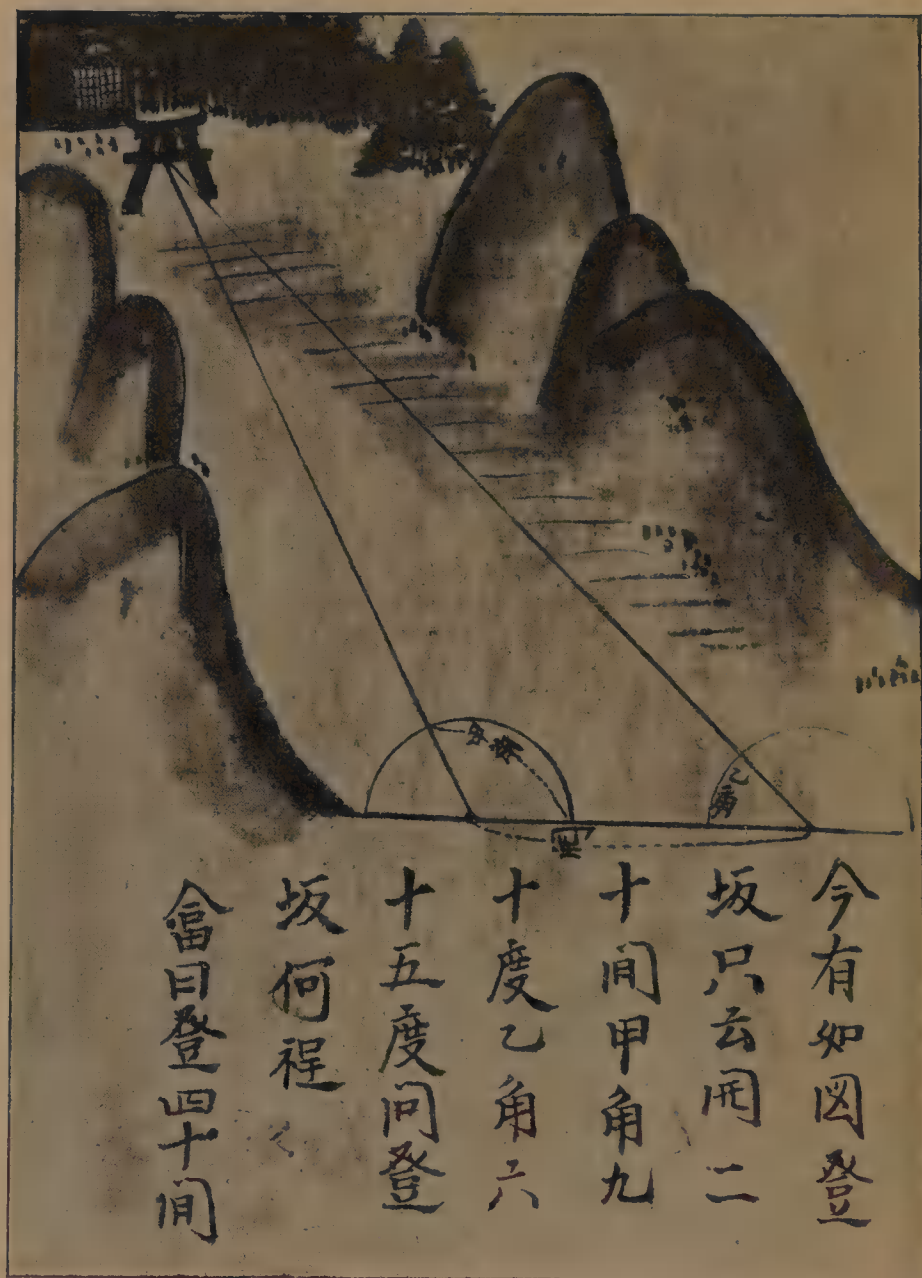 乙角
今有如図登
坂只云開二
十间甲角九
十度乙角六
十五度问登
坂何程
畣曰登四十间